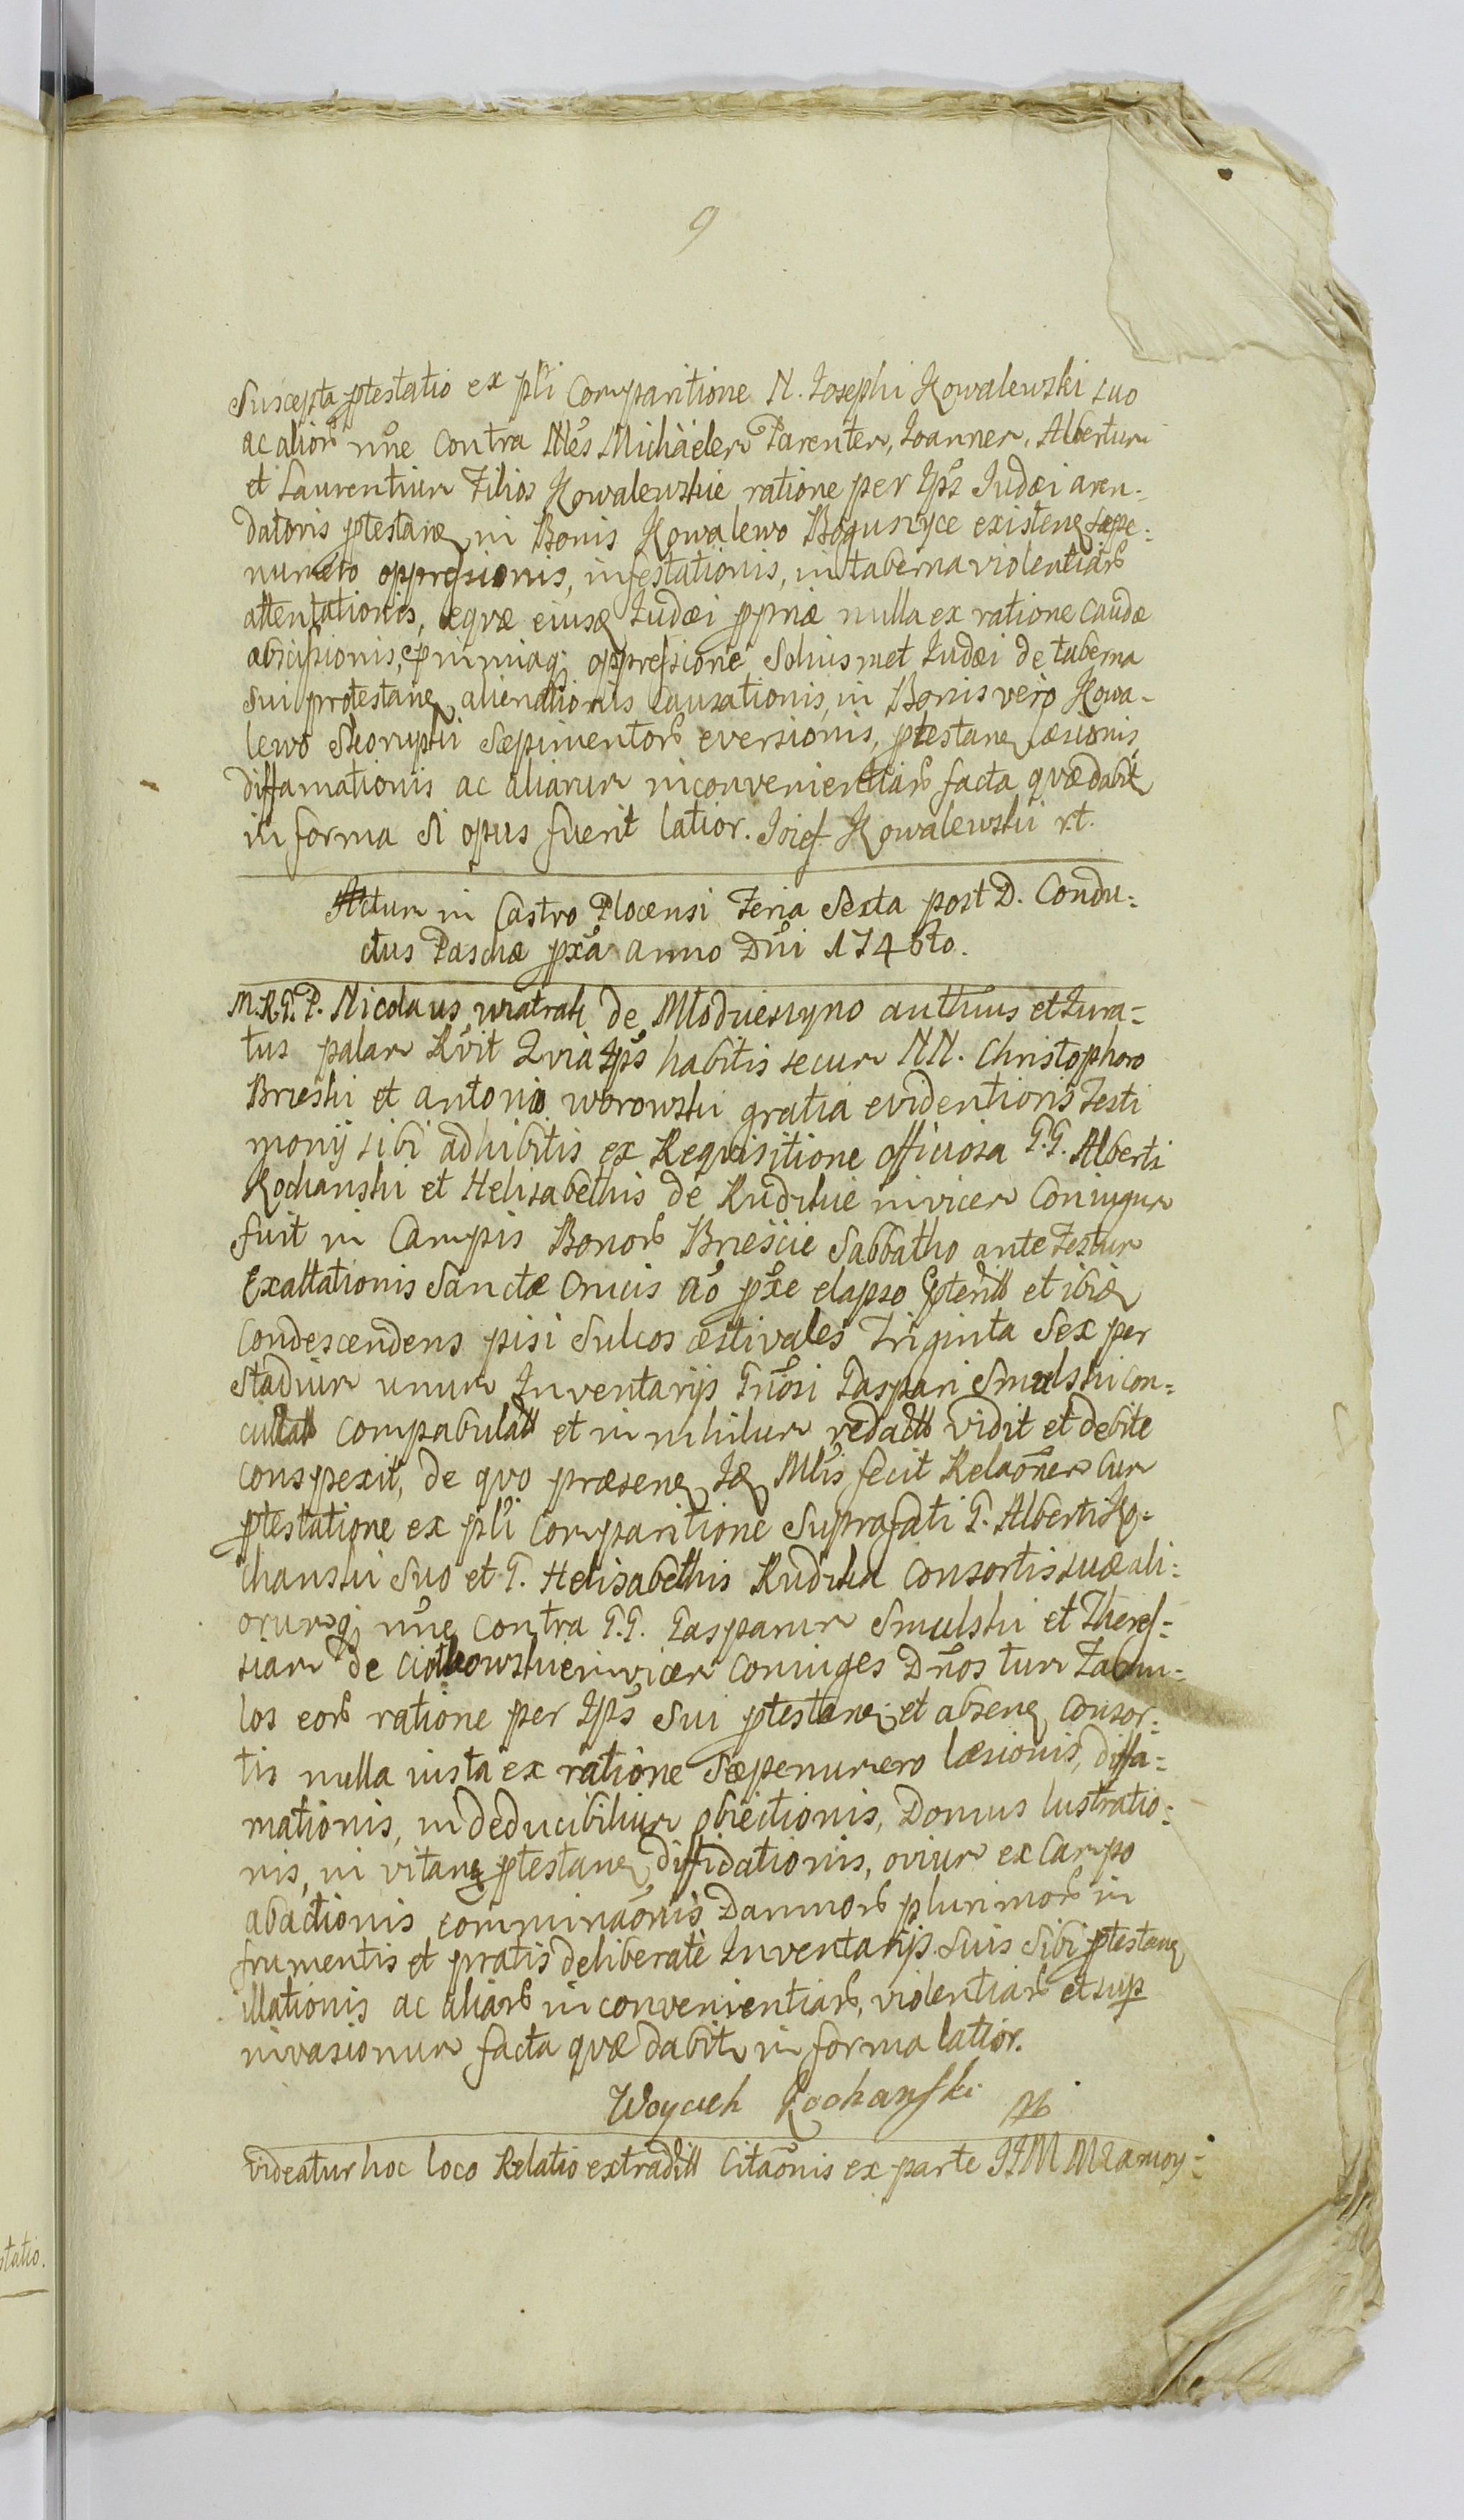 9
Suscepta ptestatio ex pñti Comparitione N. Josephi Kowalewski suo
ac alior nõe Contra Nles Michäelem Parentem, Joannem, Albertum
et Laurentium Filios Kowalewskie ratione per Ips Judæi aren-
datoris ptestan in Bonis Kowalewo Boguszyce existen sæpe-
numero oppresionis, infestationis, in taberna violentiar
attentationis, eqvæ eiusd Judæi ppriæ nulla ex ratione caudæ
abscissionis, nimiaq oppressione Solius met Judæi de taberna
sui protestan alienationis causationis, in Bonis vero Kowa-
lewo Skorupki Sæpimentor eversionis, ptestan læsionis,
diffamationis ac aliarum inconvenientiar facta qvæ dabit
in forma si opus fuerit latior. Josef Kowalewski r.t.
Actum in Castro Plocensi Feria Sexta post D. Condu-
ctus Paschæ pxa Anno Dni 1746to.
M.R.G.P. Nicolaus Wiatrak de Mlodzieszyno authus et Jura-
tus palam Rvit Qvia Ips habitis secum NN. Christophoro
Brieski et Antonio Worowski gratia evidentioris Testi
monij sibi adhibitis ex Reqvisitione officiosa G.G. Alberti
Kochanski et Helisabethis de Rudzkie invicem Coniugum
fuit in Campis Bonor Brieście Sabbatho ante Festum
Exaltationis Sanctæ Crucis Ao pxe elapso pterit et ibid
Condescendens pisi Sulcos æstivales Triginta Sex per
Stadium unum Inventarijs Gñosi Gaspari Smulski Con-
culcat Compabulat et in nihilum redact vidit et debite
conspexit, de qvo præsen Id Mlis fecit Relaõnem Cum
ptestatione ex pñti Comparitione Suprafati G. Alberti Ko-
chanski suo et G. Helisabethis Rudzka Consortis suæ ali-
orumq nõe Contra G.G. Gasparum Smulski et Theres-
siam de Ciołkowskie invicem Coniuges Dños tum Famu-
los eor ratione per Ips Sui ptestan et absen Consor-
tis nulla iusta ex ratione Sæpenumero læsionis, diffa-
mationis, indeducibilium obiectionis, Domus lustratio-
nis, in vitam ptestan diffidationis, ovium ex Campo
abactionis comminaõnis Damnor plurimor in
frumentis et pratis deliberatè Inventarijs suis sibi ptestan
illationis ac aliar inconvenientiar, violentiar et sup
invasionum facta qvæ dabit in forma latior.
Woyciech Kochanski
videatur hoc loco Relatio extradit Citaõnis ex parte